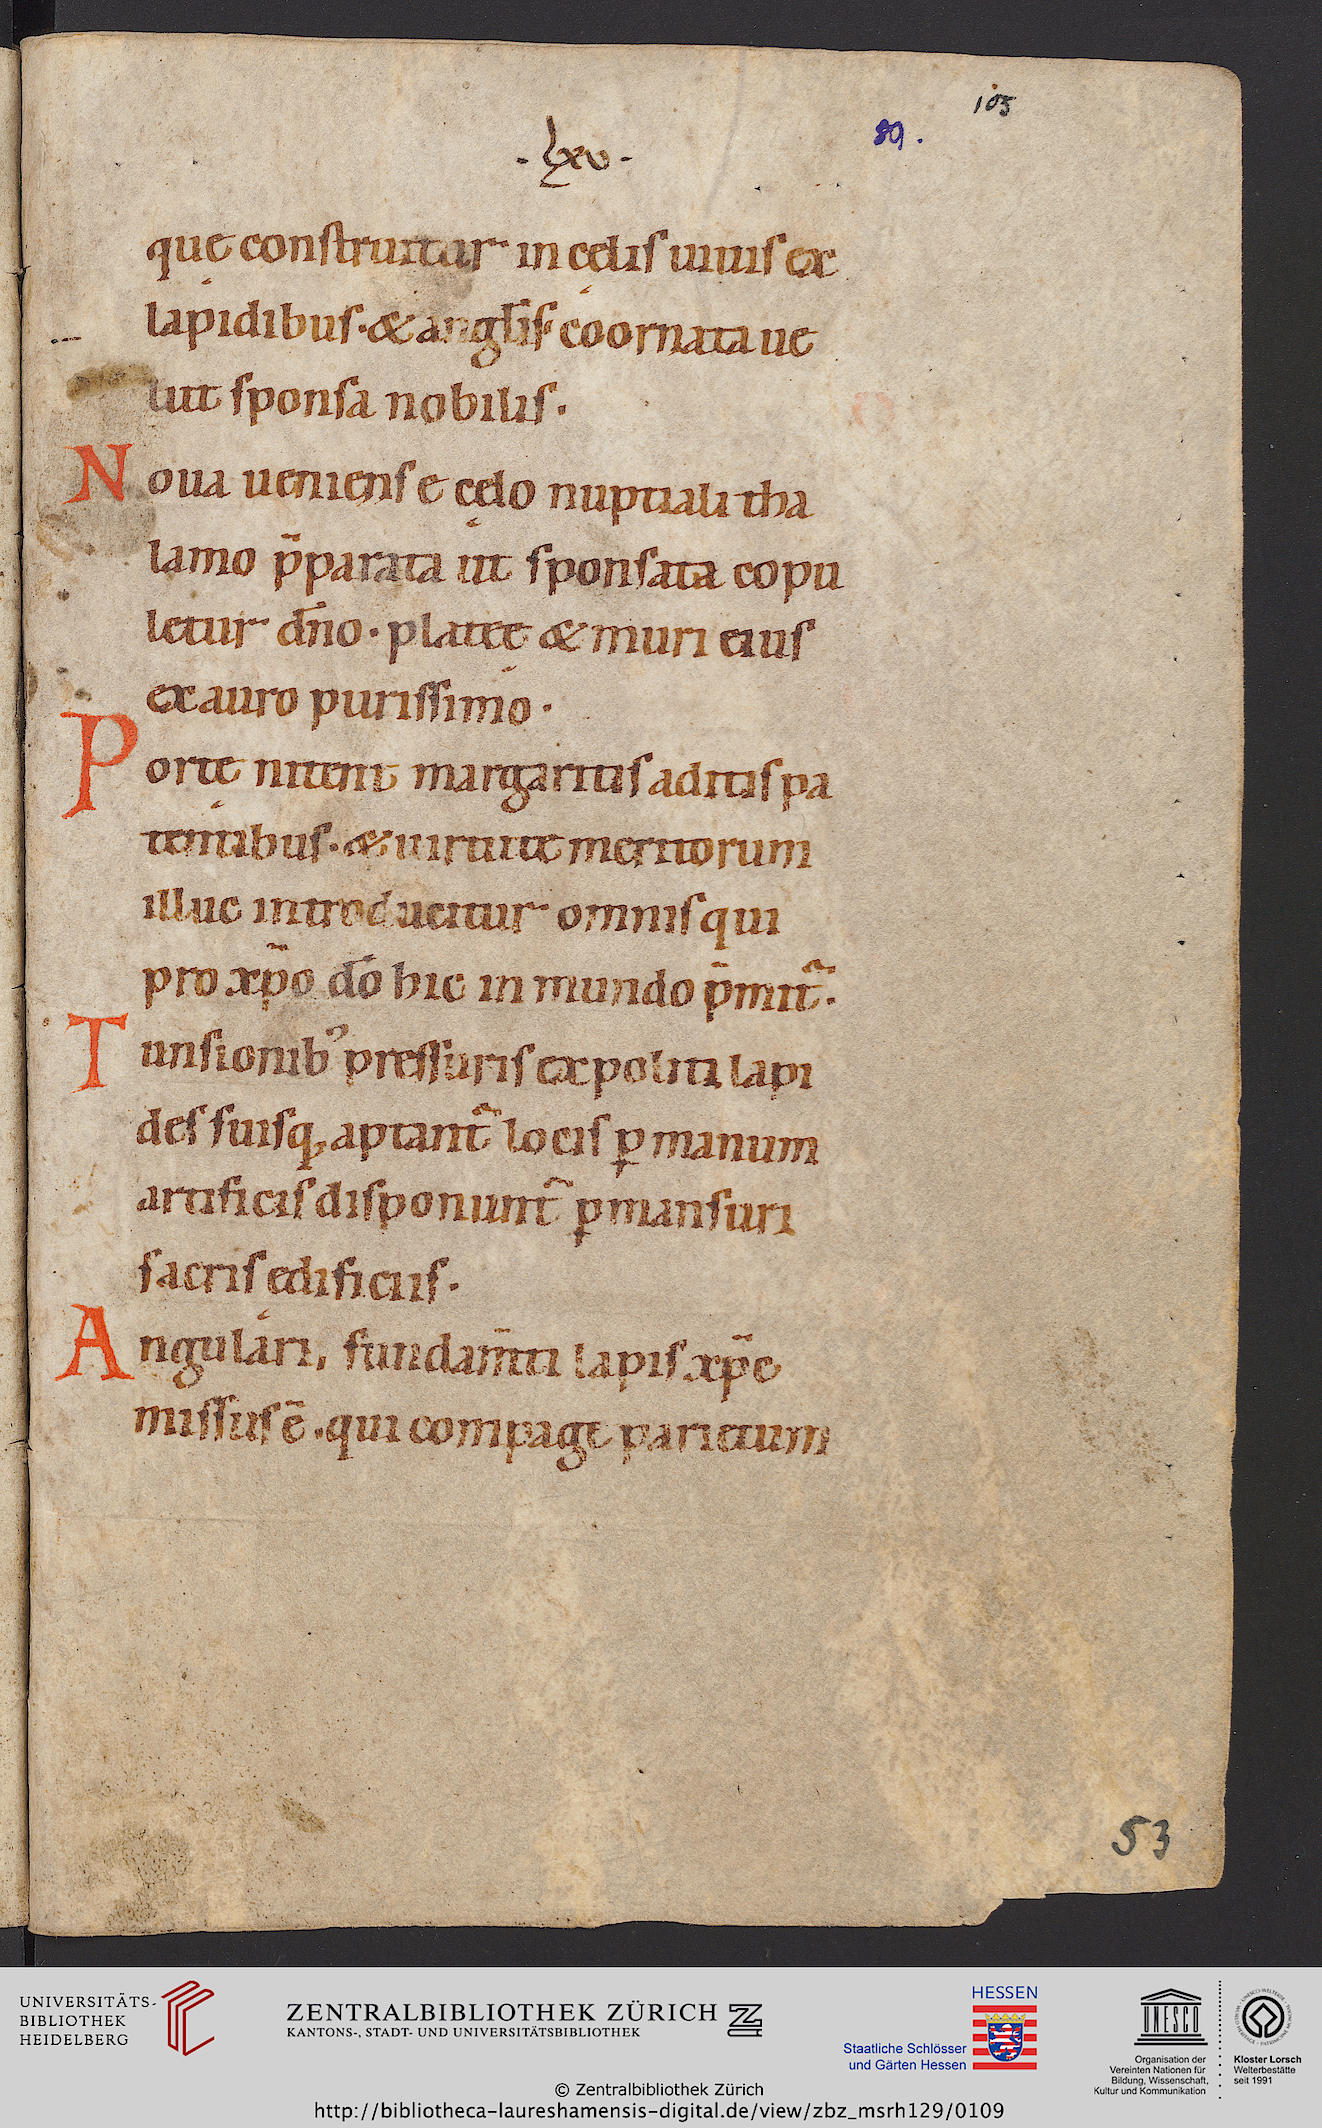 105
89.
·lxv·
que construitur in cęlis uiuis ex
lapidibus· & angl̄is coornata ue
lut sponsa nobilis·
Noua ueniens e cęlo nuptiali tha
lamo p̄parata ut sponsata copu
letur dn̄o· platee & muri eius
ex auro purissimo·
Porte nitent margaritis aditis pa
tentibus· & uirtute meritorum
illuc introducitur omnis qui
pro xp̄o dō hic in mundo p̄mit᷑·
Tunsionibꝰ pressuris expoliti lapi
des suisq, aptant᷑ locis ꝑ manum
artificis disponunt᷑ ꝑmansuri
sacris edificiis·
Angulari, fundam̄ti lapis xp̄c
missus ē· qui compage parietum
53
UNIVERSITÄTS-
BIBLIOTHEK
HEIDELBERG
ZENTRALBIBLIOTHEK ZÜRICH
KANTONS-, STADT- UND UNIVERSITÄTSBIBLIOTHEK
HESSEN
Staatliche Schlösser
und Gärten Hessen
UNESCO
Organisation der
Vereinten Nationen für
Bildung, Wissenschaft,
Kultur und Kommunikation
Kloster Lorsch
Welterbestätte
seit 1991
© Zentralbibliothek Zürich
http://bibliotheca-laureshamensis-digital.de/view/zbz_msrh129/0109